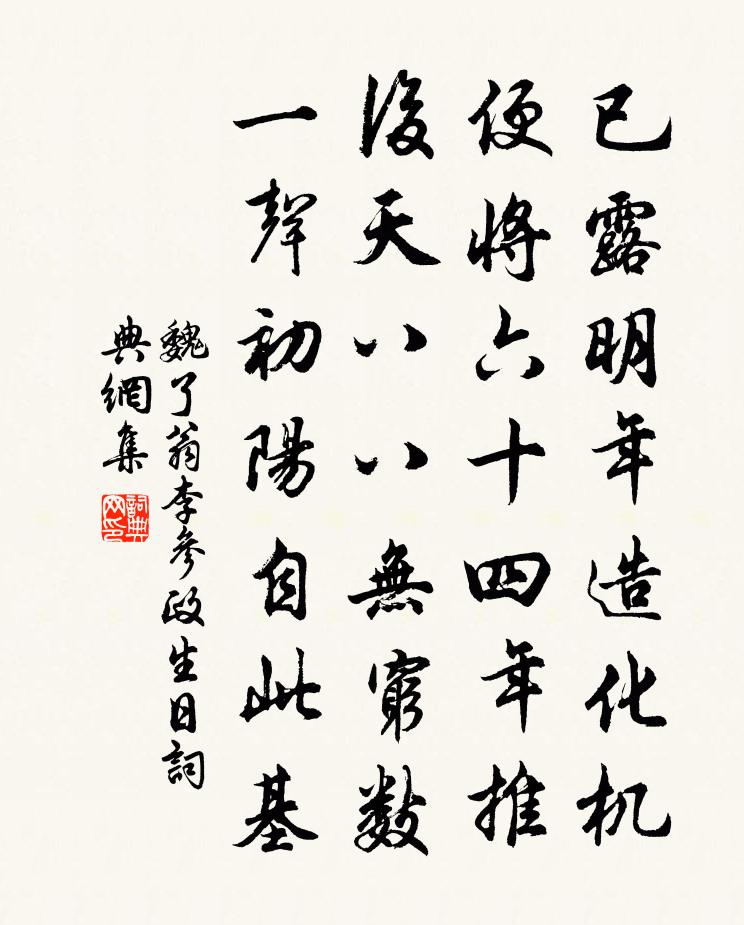 已露明年造化机
便將六十四年推
後天八八無窮數
一聲初陽自此基
魏了翁李參政生日詞
典網集
詞典網印